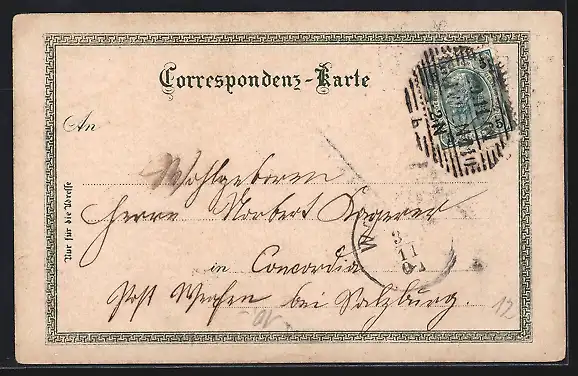 Correspondenz-Karte
An
Wohlgeboren
Herrn Norbert
in Concordia
Post Werfen bei Salzburg.
Nur für die Adresse
W
3
11
5
12